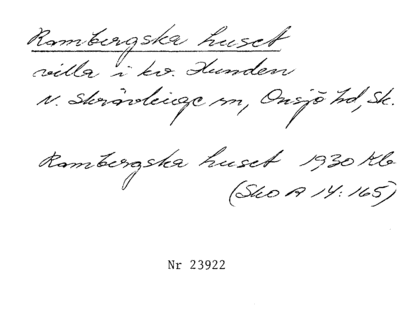 Rambergska huset
villa i kv. Hunden
N. Skrävlinge sn, Onsjö hd, Sk.
Rambergska huset 1930 Klb
(Sko A 14:165)
Nr 23922